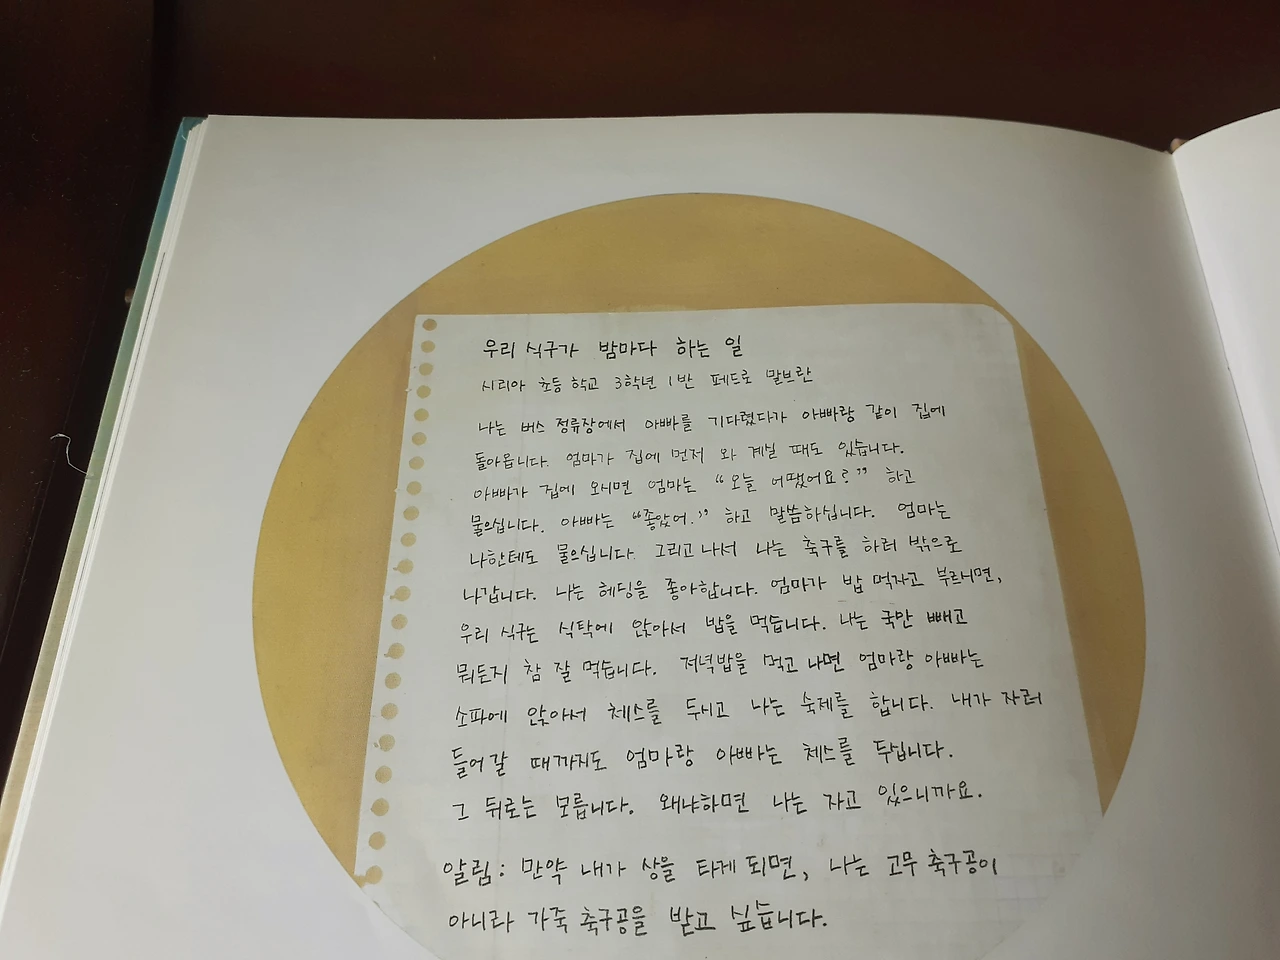 우리 식구가 밤마다 하는 일
시리아 초등 학교 3학년 1반 페드로 말브란
나는 버스 정류장에서 아빠를 기다렸다가 아빠랑 같이 집에
돌아옵니다. 엄마가 집에 먼저 와 계실 때도 있습니다.
아빠가 집에 오시면 엄마는 “오늘 어땠어요?” 하고
물으십니다. 아빠는 “좋았어.” 하고 말씀하십니다. 엄마는
나한테도 물으십니다. 그리고 나서 나는 축구를 하러 밖으로
나갑니다. 나는 헤딩을 좋아합니다. 엄마가 밥 먹자고 부르시면,
우리 식구는 식탁에 앉아서 밥을 먹습니다. 나는 국만 빼고
뭐든지 참 잘 먹습니다. 저녁밥을 먹고 나면 엄마랑 아빠는
소파에 앉아서 체스를 두시고 나는 숙제를 합니다. 내가 자러
들어갈 때까지도 엄마랑 아빠는 체스를 두십니다.
그 뒤로는 모릅니다. 왜냐하면 나는 자고 있으니까요.
알림: 만약 내가 상을 타게 되면, 나는 고무 축구공이
아니라 가죽 축구공을 받고 싶습니다.